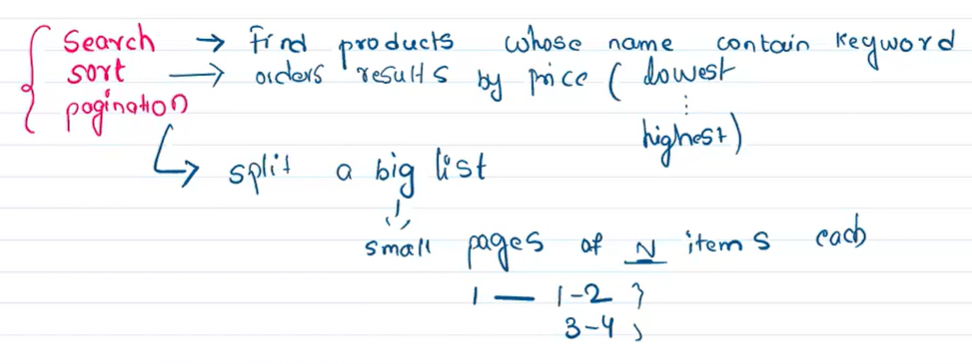 Search → find products whose name contain keyword
sort → orders results by price (lowest
⋮
pagination
highest)
↳ split a big list
small pages of N items each
1 — 1-2 }
3-4 }